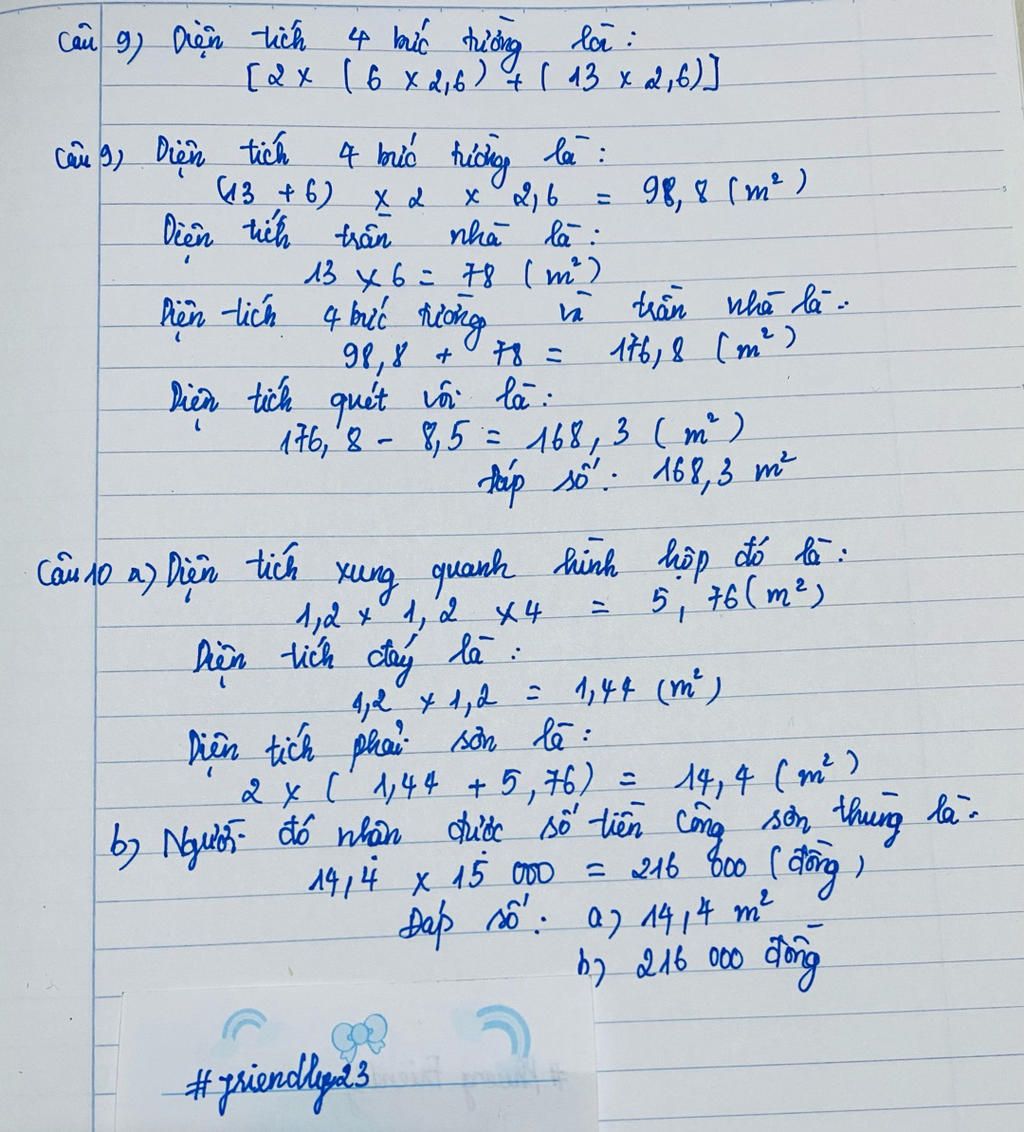 Câu 9) Diện tích 4 bức tường là:
[2 x (6 x 2,6) + (13 x 2,6)]
Câu 9) Diện tích 4 bức tường là:
(13 + 6) x 2 x 2,6 = 98,8 (m²)
Diện tích trần nhà là:
13 x 6 = 78 (m²)
Diện tích 4 bức tường và trần nhà là:
98,8 + 78 = 176,8 (m²)
Diện tích quét vôi là:
176,8 - 8,5 = 168,3 (m²)
Đáp số: 168,3 m²
Câu 10 a) Diện tích xung quanh hình hộp đó là:
1,2 x 1,2 x 4 = 5,76 (m²)
Diện tích đáy là:
1,2 x 1,2 = 1,44 (m²)
Diện tích phải sơn là:
2 x (1,44 + 5,76) = 14,4 (m²)
b) Người đó nhận được số tiền công sơn thùng là:
14,4 x 15 000 = 216 000 (đồng)
Đáp số: a) 14,4 m²
b) 216 000 đồng
#friendly23